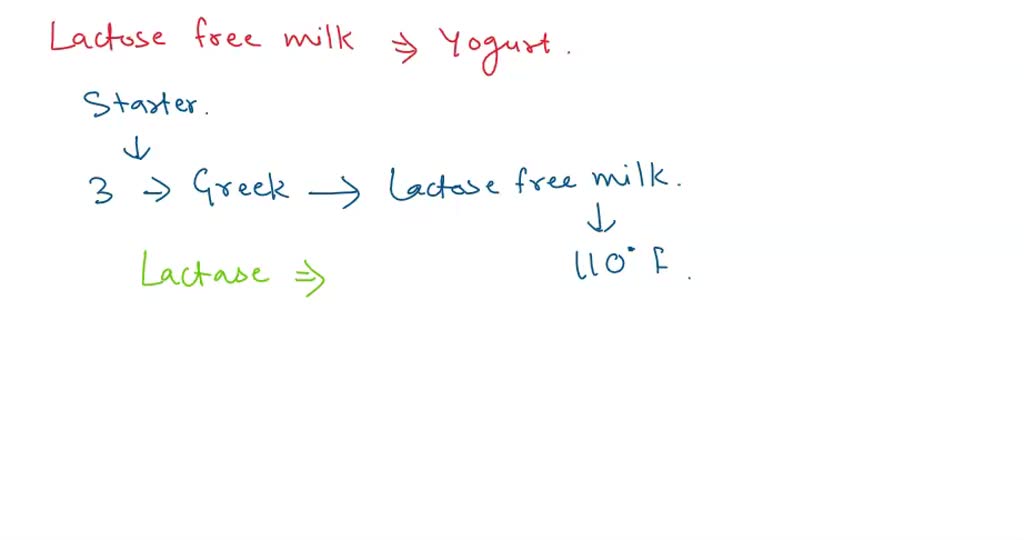 Lactose free milk ⇒ Yogurt.
Starter.
↓
3 ⇒ Greek → Lactose free milk.
↓
Lactase ⇒ 110° F.